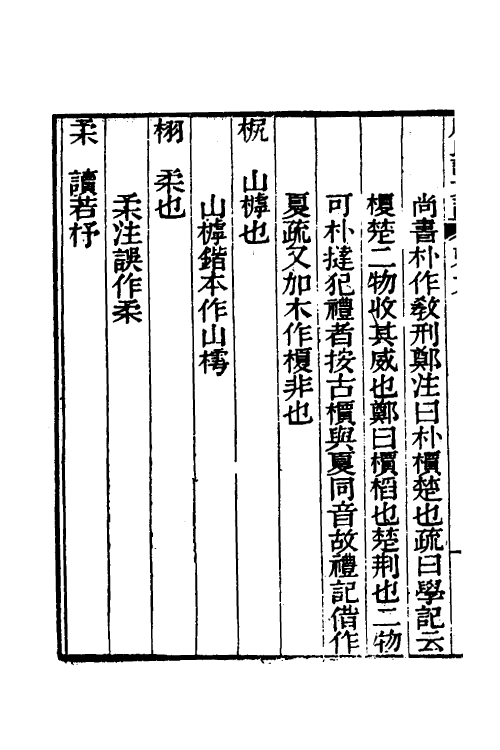 尚書朴作敎刑鄭注曰朴檟楚也疏曰學記云
榎楚二物收其威也鄭曰檟榙也楚荆也二物
可朴撻犯禮者按古檟與夏同音故禮記借作
夏疏又加木作榎非也
柅　山樗也
山樗鍇本作山樗
栩　柔也
柔注誤作柔
柔　讀若杼